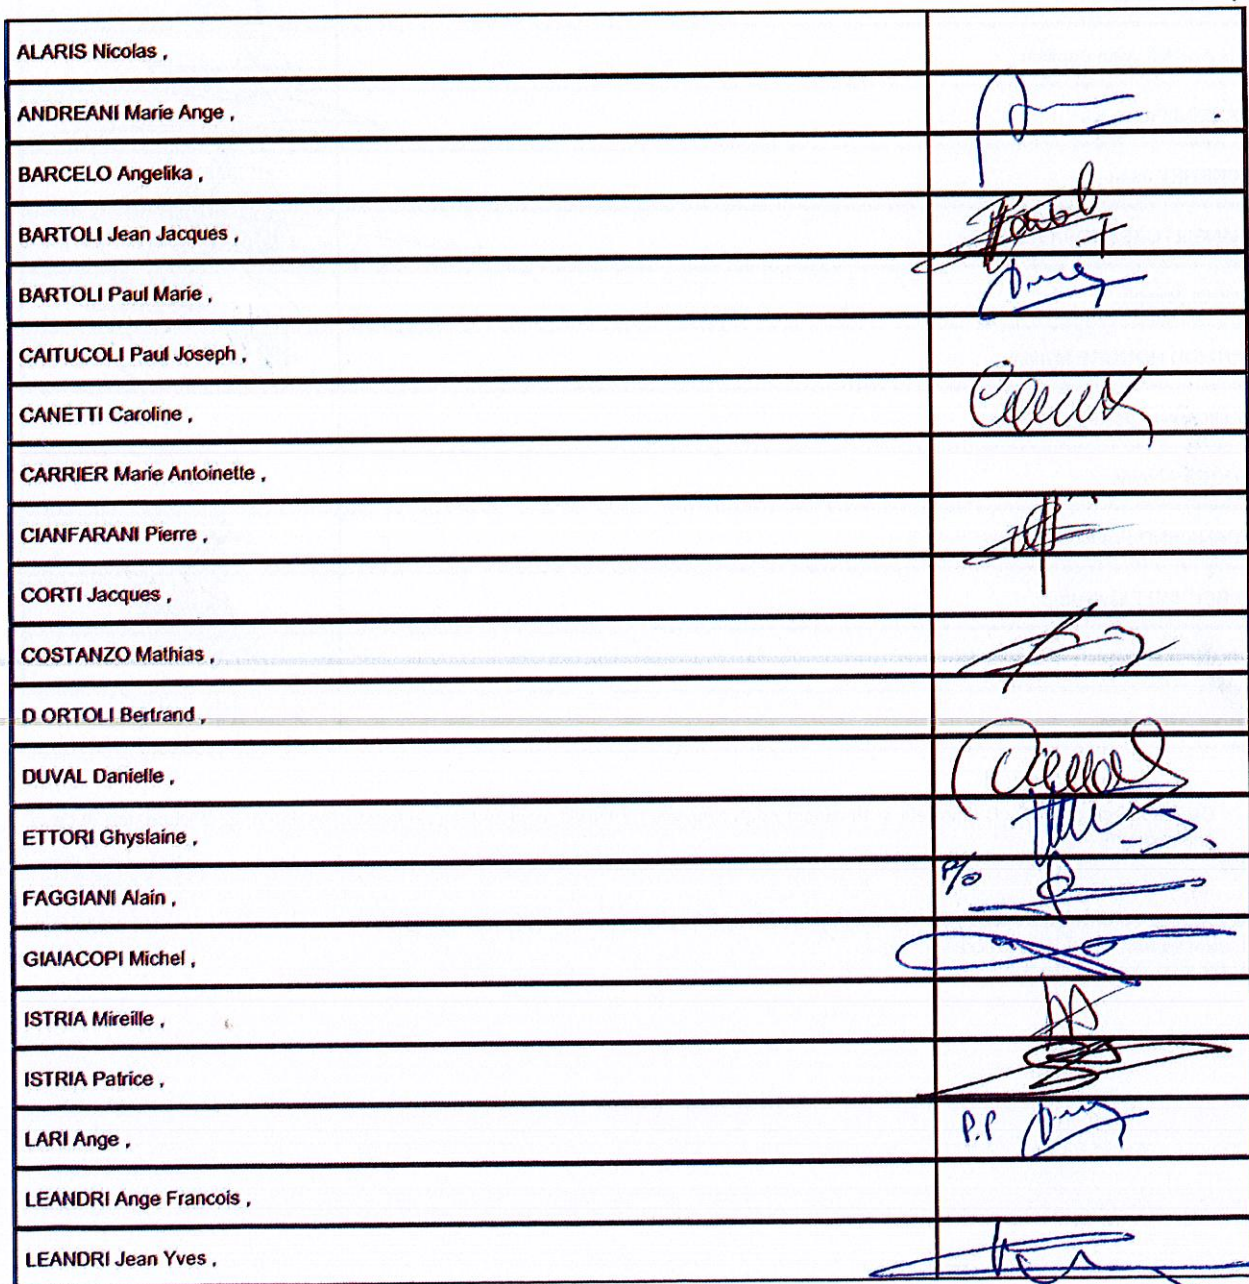 ALARIS Nicolas ,
ANDREANI Marie Ange ,
BARCELO Angelika ,
BARTOLI Jean Jacques ,
BARTOLI Paul Marie ,
CAITUCOLI Paul Joseph ,
CANETTI Caroline ,
CARRIER Marie Antoinette ,
CIANFARANI Pierre ,
CORTI Jacques ,
COSTANZO Mathias ,
D ORTOLI Bertrand ,
DUVAL Danielle ,
ETTORI Ghyslaine ,
FAGGIANI Alain , P/o
GIAIACOPI Michel ,
ISTRIA Mireille ,
ISTRIA Patrice ,
LARI Ange , P.P
LEANDRI Ange Francois ,
LEANDRI Jean Yves ,